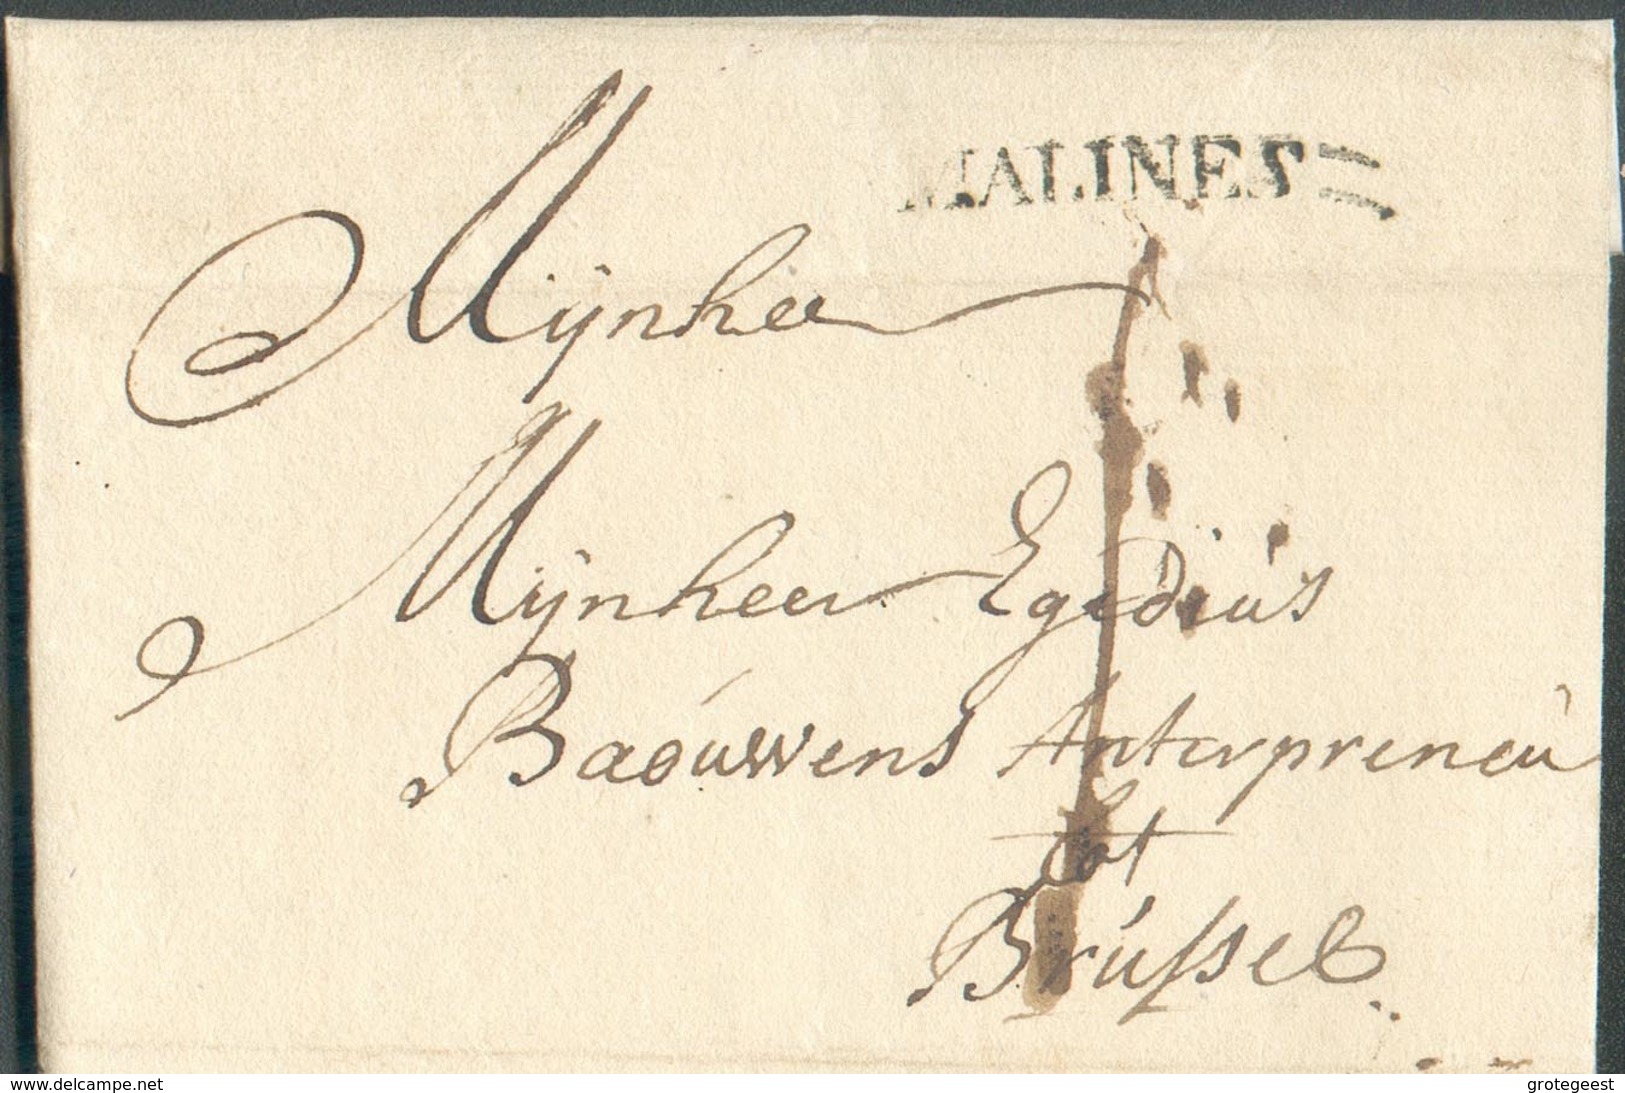 MALINES
Mijnheer
Mijnheer Egidiús
Baoúwens Anterpreneú
tot
Brússel
www.delcampe.net
grotegeest